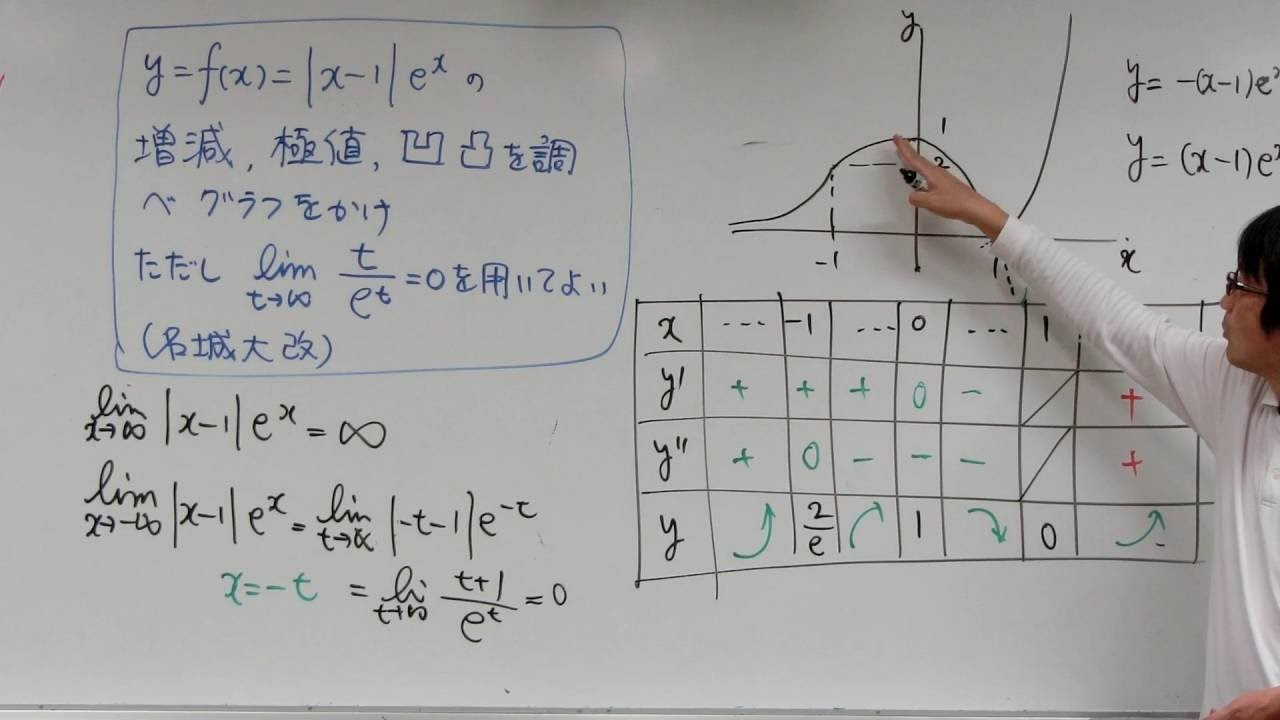 y=f(x)=|x-1|e^x の
増減, 極値, 凹凸を調
べグラフをかけ
ただし lim_{t→∞} t/e^t =0を用いてよい
(名城大 改)
lim_{x→∞} |x-1|e^x = ∞
lim_{x→-∞} |x-1|e^x = lim_{t→∞} |-t-1|e^{-t}
x=-t = lim_{t→∞} (t+1)/e^t = 0
y
1
2
-1
1
x
y=-(x-1)e^x
y=(x-1)e^x
x … -1 … 0 … 1
y' + + + 0 - +
y'' + 0 - - - +
y 2/e 1 0